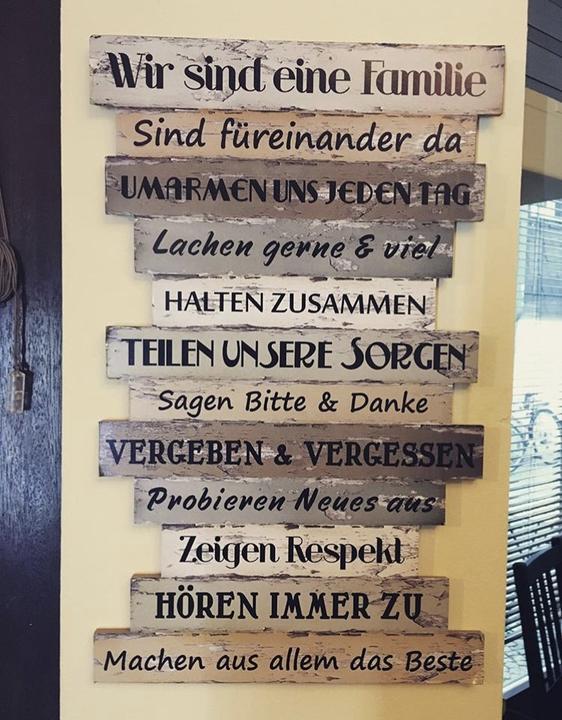 Wir sind eine Familie
Sind füreinander da
UMARMEN UNS JEDEN TAG
Lachen gerne & viel
HALTEN ZUSAMMEN
TEILEN UNSERE SORGEN
Sagen Bitte & Danke
VERGEBEN & VERGESSEN
Probieren Neues aus
Zeigen Respekt
HÖREN IMMER ZU
Machen aus allem das Beste